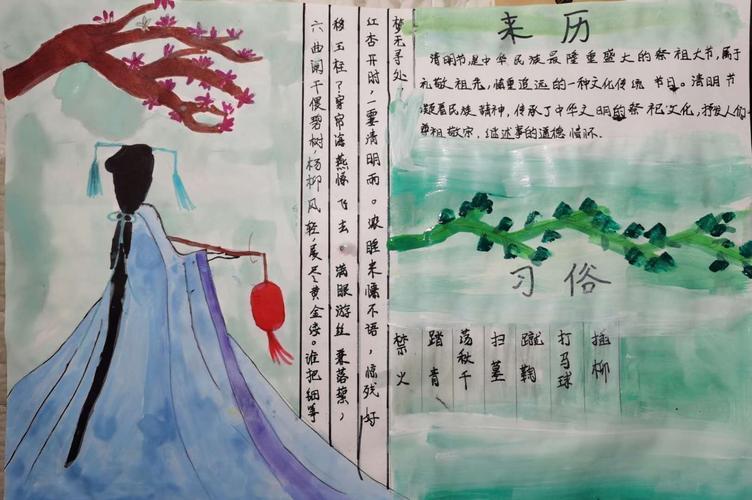 六曲阑干偎碧树,杨柳风轻,展尽黄金缕。谁把钿筝
移玉柱?穿帘海燕惊飞去。满眼游丝兼落絮,
红杏开时,一霎清明雨。浓睡来慵不语,惊残好
梦无寻处。
来历
清明节是中华民族最隆重盛大的祭祖大节,属于
礼敬祖先,慎重追远的一种文化传统节日。清明节
凝着民族精神,传承了中华文明的祭祀文化,抒发人们
尊祖敬宗、继述事的道德情怀.
习俗
禁火
踏青
荡秋千
扫墓
蹴鞠
打马球
插柳